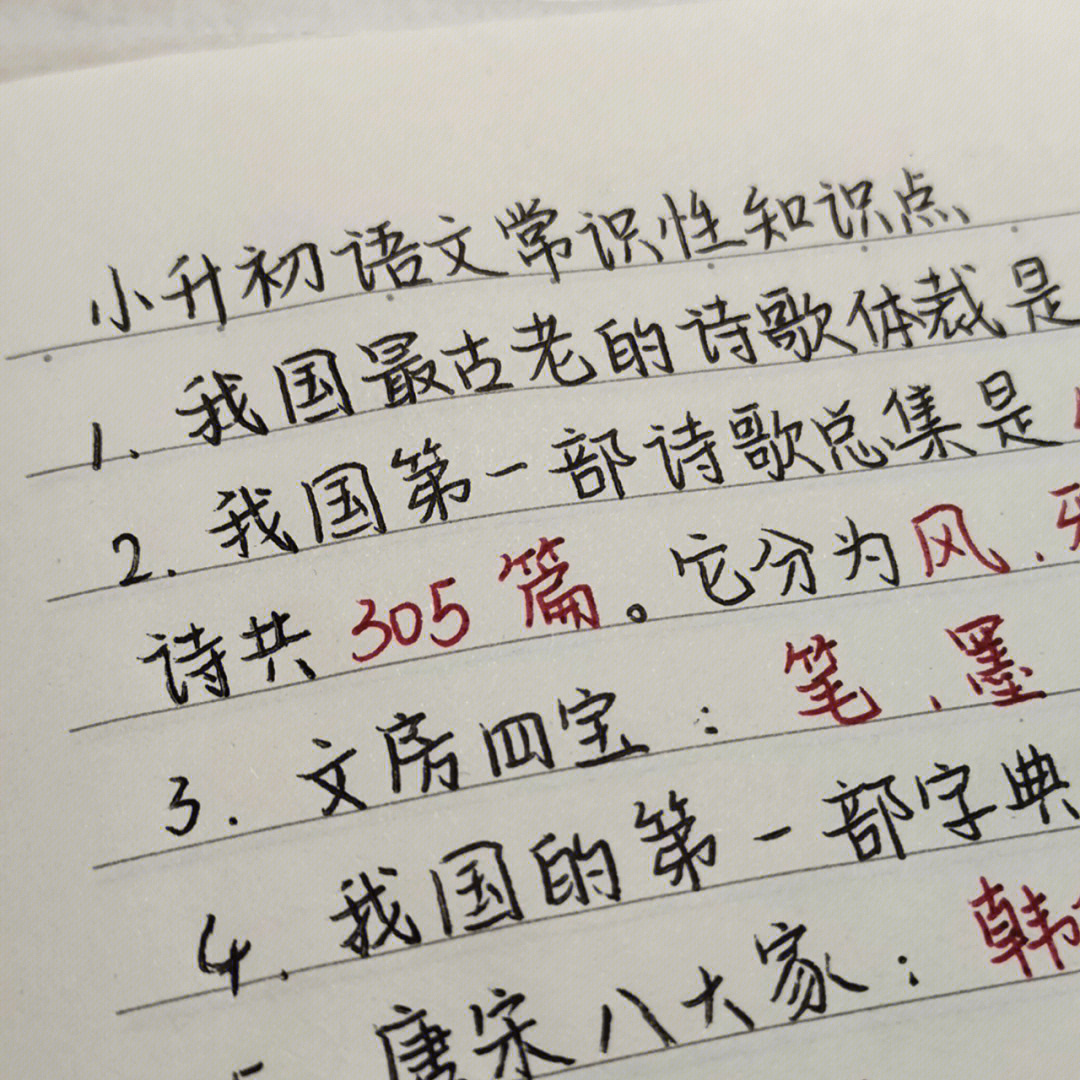 小升初语文常识性知识点
1. 我国最古老的诗歌体裁是
2. 我国第一部诗歌总集是
诗共305篇。它分为风、
3. 文房四宝：笔、墨
4. 我国的第一部字典
唐宋八大家：韩